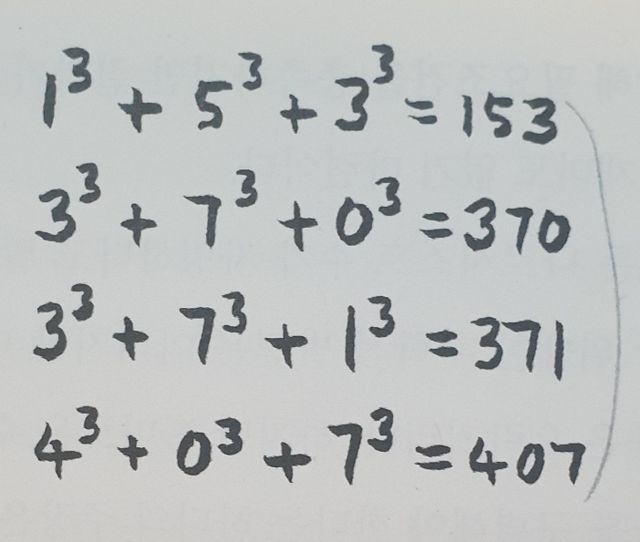 1³ + 5³ + 3³ = 153
3³ + 7³ + 0³ = 370
3³ + 7³ + 1³ = 371
4³ + 0³ + 7³ = 407